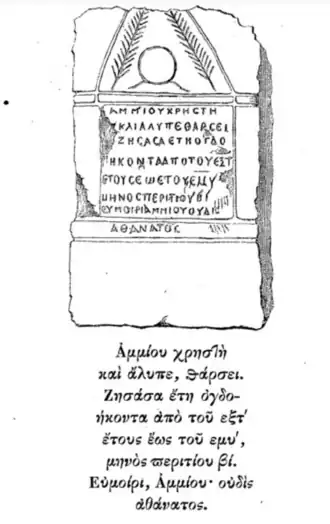 ΑΜΜΙΟΥΧΡΗϹΤΗ
ΚΑΙΑΛΥΠΕΘΑΡϹΕΙ
ΖΗϹΑϹΑΕΤΗΟΓΔΟ
ΗΚΟΝΤΑΑΠΟΤΟΥΕΞΤ
ΕΤΟΥϹΕωϹΤΟΥΕΜΥ
ΜΗΝΟϹΠΕΡΙΤΙΟΥΒΙ
ΕΥΜΟΙΡΙΑΜΜΙΟΥΟΥΔΙ
ΑΘΑΝΑΤΟϹ
Ἀμμίου χρησΊὴ
καὶ ἄλυπε, θάρσει.
Ζησάσα ἔτη ὀγδο-
ήκοντα ἀπὸ τοῦ εξτʹ
ἔτους ἕως τοῦ εμυʹ,
μηνὸς περιτίου βί.
Εὐμοίρι, Ἀμμίου· οὐδὶς
ἀθάνατος.